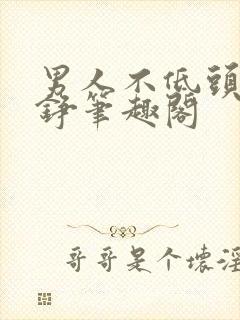 男人不低頭
錚笔趣阁
哥哥是个壞淫